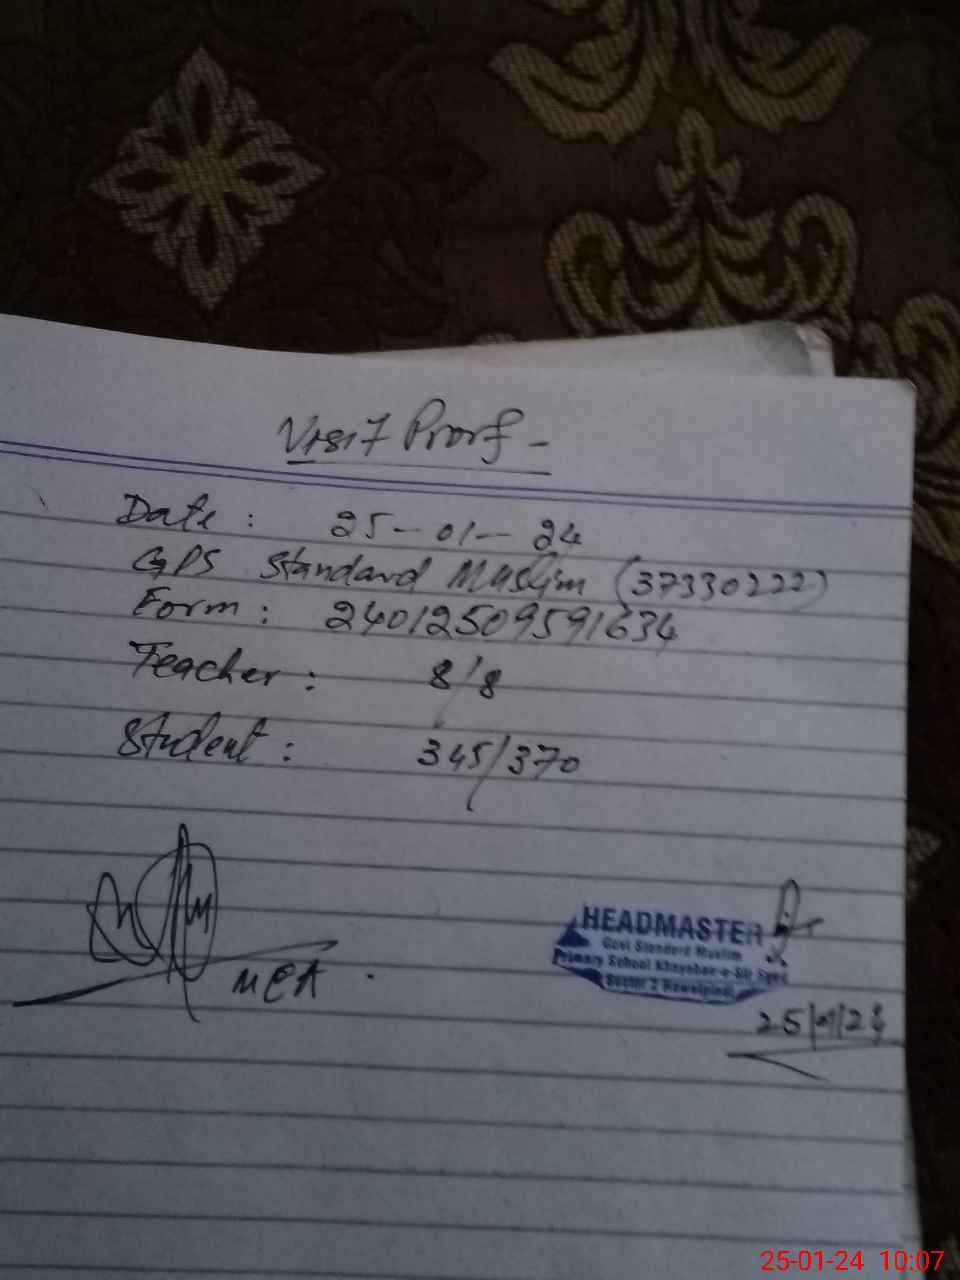 Visit Proof -
Date : 25-01-24
GPS Standard Muslim (37330222)
Form : 240125095591634
Teacher : 8/8
Student : 345/370
MEA .
HEADMASTER
Govt Standerd Muslim
Primary School Khayaban-e-Sir Syed
Sector 2 Rawalpindi
25/01/24
25-01-24 10:07